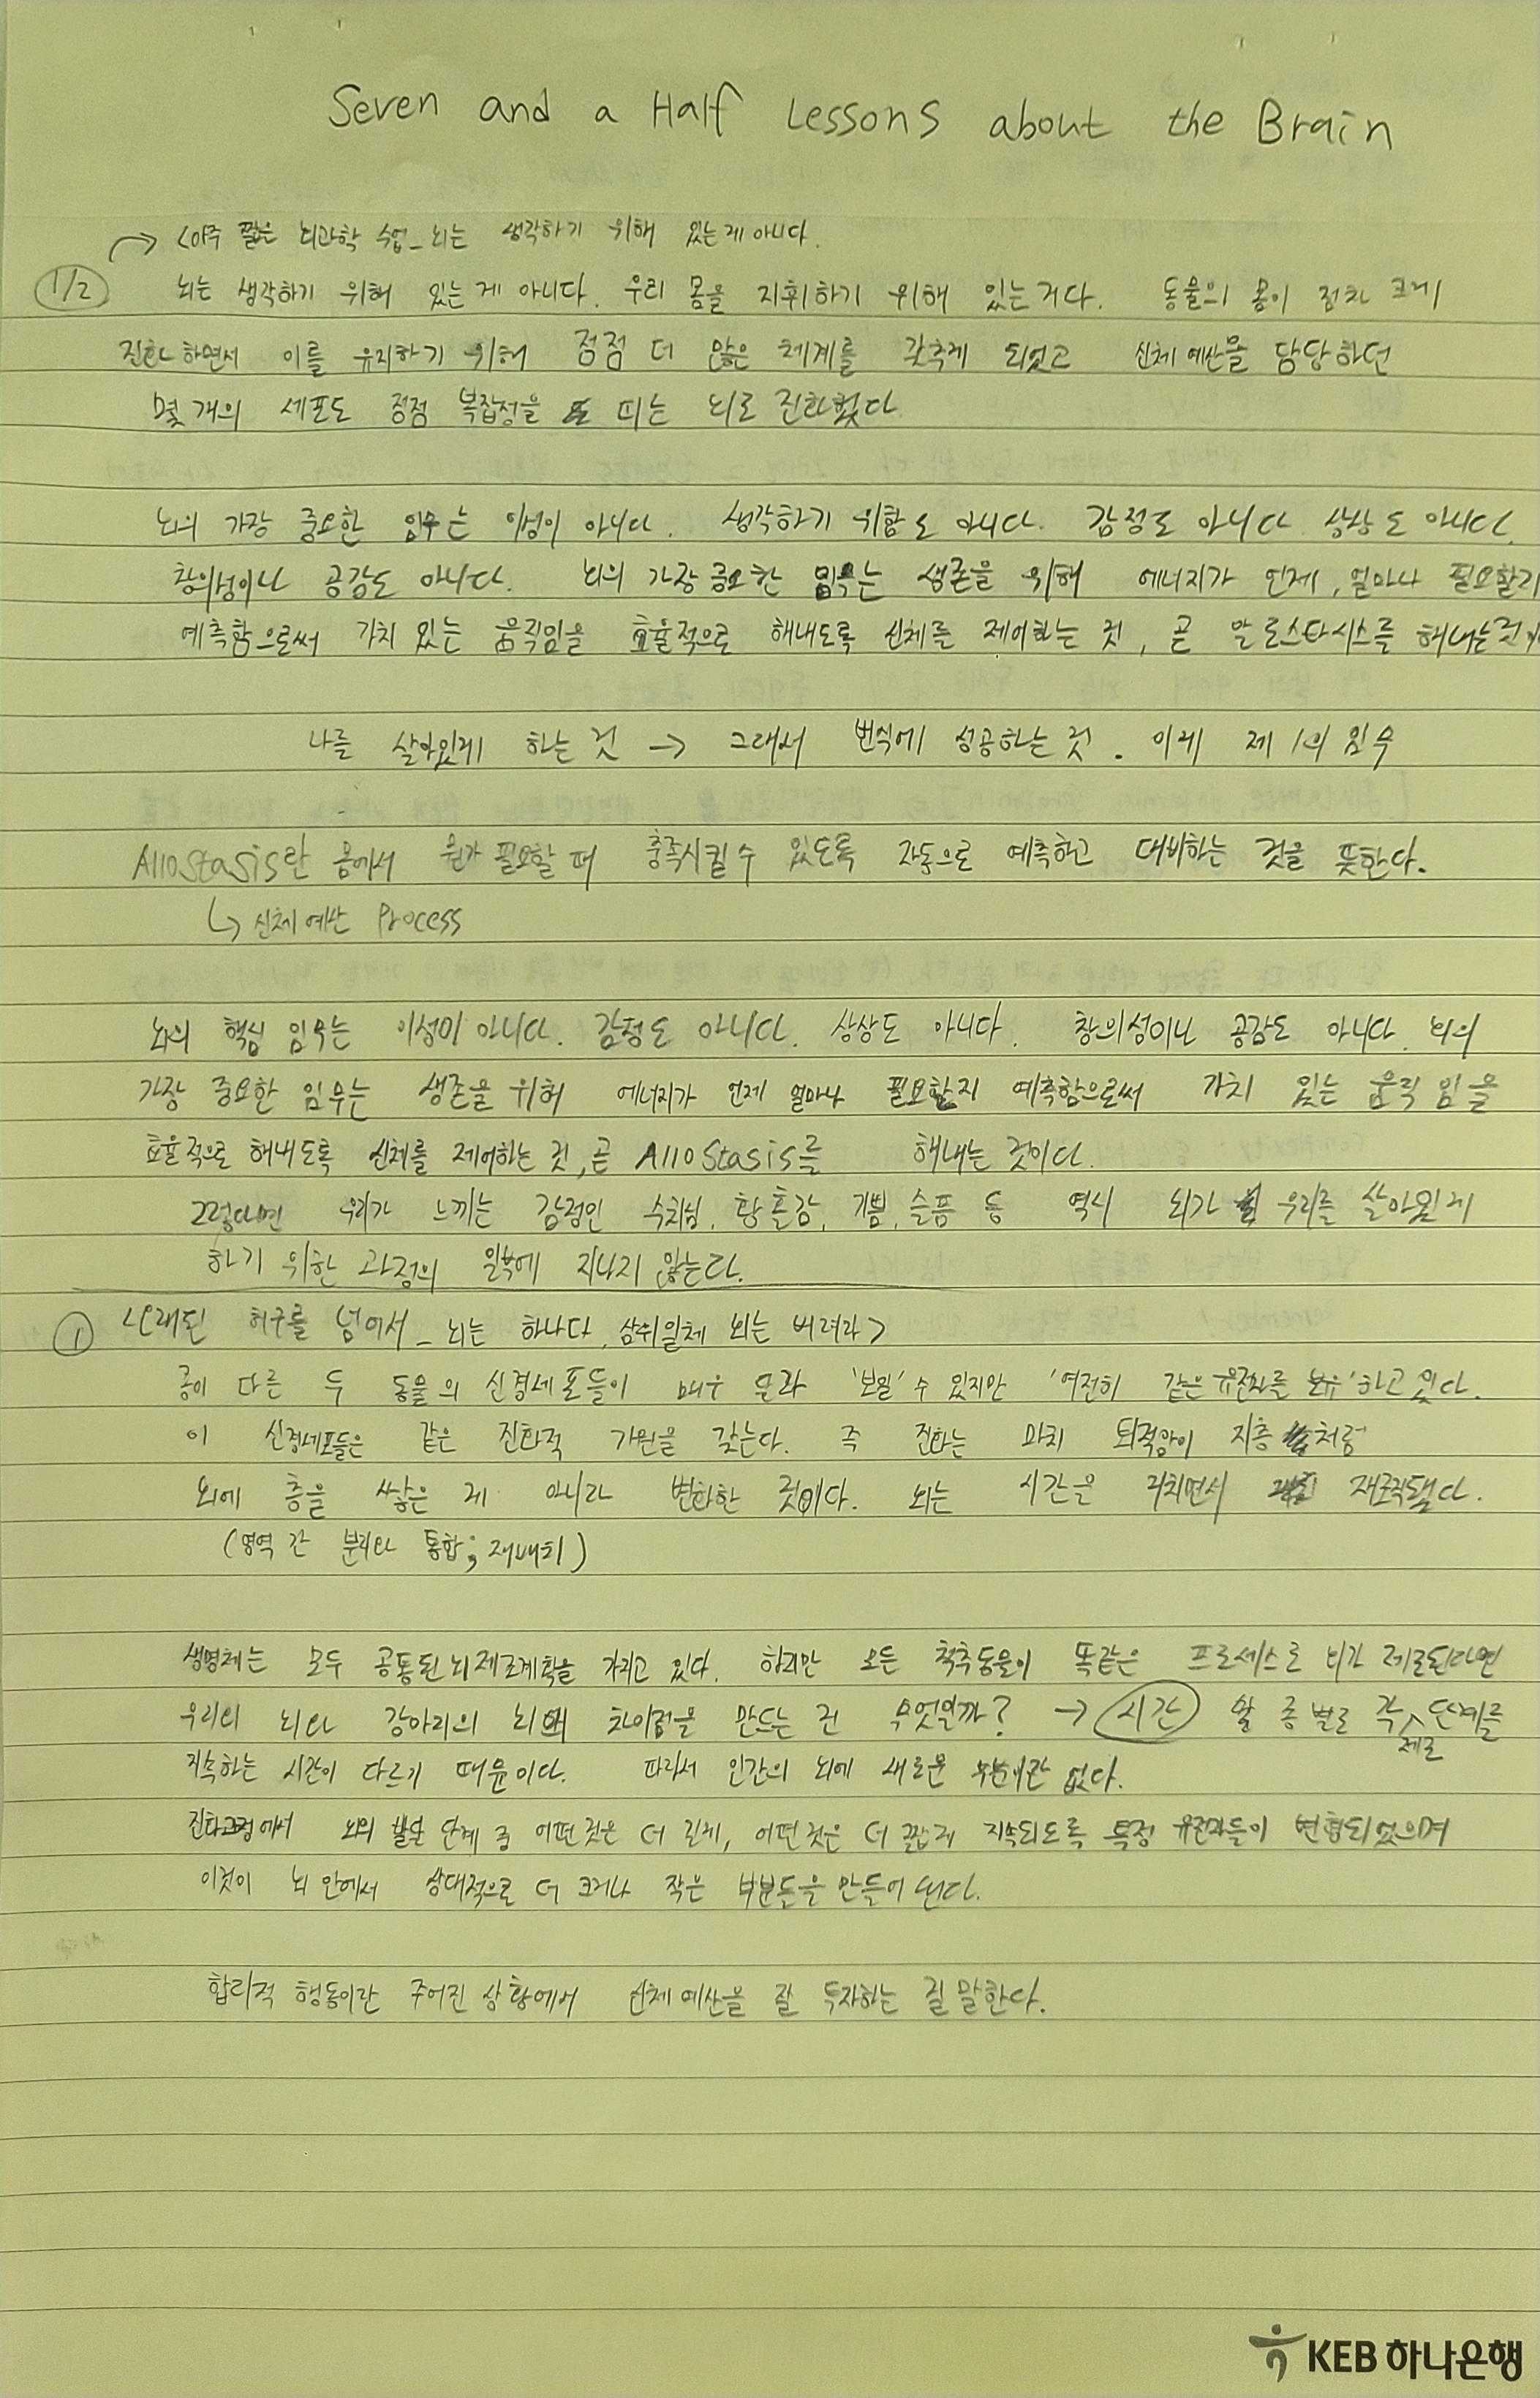 Seven and a Half Lessons about the Brain
→ <아주 짧은 뇌과학 수업_뇌는 생각하기 위해 있는게 아니다.
1/2 뇌는 생각하기 위해 있는 게 아니다. 우리 몸을 지휘하기 위해 있는거다. 동물의 몸이 점차 크게
진화하면서 이를 유지하기 위해 점점 더 많은 체계를 갖추게 되었고 신체 예산을 담당하던
몇 개의 세포도 점점 복잡성을 띠는 뇌로 진화했다
뇌의 가장 중요한 임무는 이성이 아니다. 생각하기 위함도 아니다. 감정도 아니다 상상도 아니다.
창의성이나 공감도 아니다. 뇌의 가장 중요한 임무는 생존을 위해 에너지가 언제, 얼마나 필요할지
예측함으로써 가치 있는 움직임을 효율적으로 해내도록 신체를 제어하는 것, 곧 알로스타시스를 해내는것이
나를 살아있게 하는 것 → 그래서 번식에 성공하는 것. 이게 제 1의 임무
Allostasis란 몸에서 뭔가 필요할 때 충족시킬 수 있도록 자동으로 예측하고 대비하는 것을 뜻한다.
↳ 신체 예산 Process
뇌의 핵심 임무는 이성이 아니다. 감정도 아니다. 상상도 아니다. 창의성이나 공감도 아니다. 뇌의
가장 중요한 임무는 생존을 위해 에너지가 언제 얼마나 필요할지 예측함으로써 가치 있는 움직임을
효율적으로 해내도록 신체를 제어하는 것, 곧 Allostasis를 해내는 것이다.
그렇다면 우리가 느끼는 감정인 수치심, 황홀감, 기쁨, 슬픔 등 역시 뇌가 우리를 살아있게
하기 위한 과정의 일부에 지나지 않는다.
① <오래된 허구를 넘어서_뇌는 하나다, 삼위일체 뇌는 버려라>
종이 다른 두 동물의 신경세포들이 매우 달라 '보일' 수 있지만 '여전히 같은 유전자를 보유'하고 있다.
이 신경세포들은 같은 진화적 기원을 갖는다. 즉 진화는 마치 퇴적암이 지층처럼
뇌에 층을 쌓은 게 아니라 변화한 것이다. 뇌는 시간을 거치면서 재조직됐다.
(영역 간 분리와 통합; 재배치)
생명체는 모두 공통된 뇌 제조계획을 가지고 있다. 하지만 모든 척추동물이 똑같은 프로세스로 뇌가 제조된다면
우리의 뇌와 강아지의 뇌에 차이점을 만드는 건 무엇일까? → 시간 왈 종 별로 각 제조 단계를
지속하는 시간이 다르기 때문이다. 따라서 인간의 뇌에 새로운 부분이란 없다.
진화과정에서 뇌의 발달 단계 중 어떤것은 더 길게, 어떤것은 더 짧게 지속되도록 특정 유전자들이 변형되었으며
이것이 뇌 안에서 상대적으로 더 크거나 작은 부분들을 만들어 낸다.
합리적 행동이란 주어진 상황에서 신체 예산을 잘 투자하는 걸 말한다.
KEB 하나은행